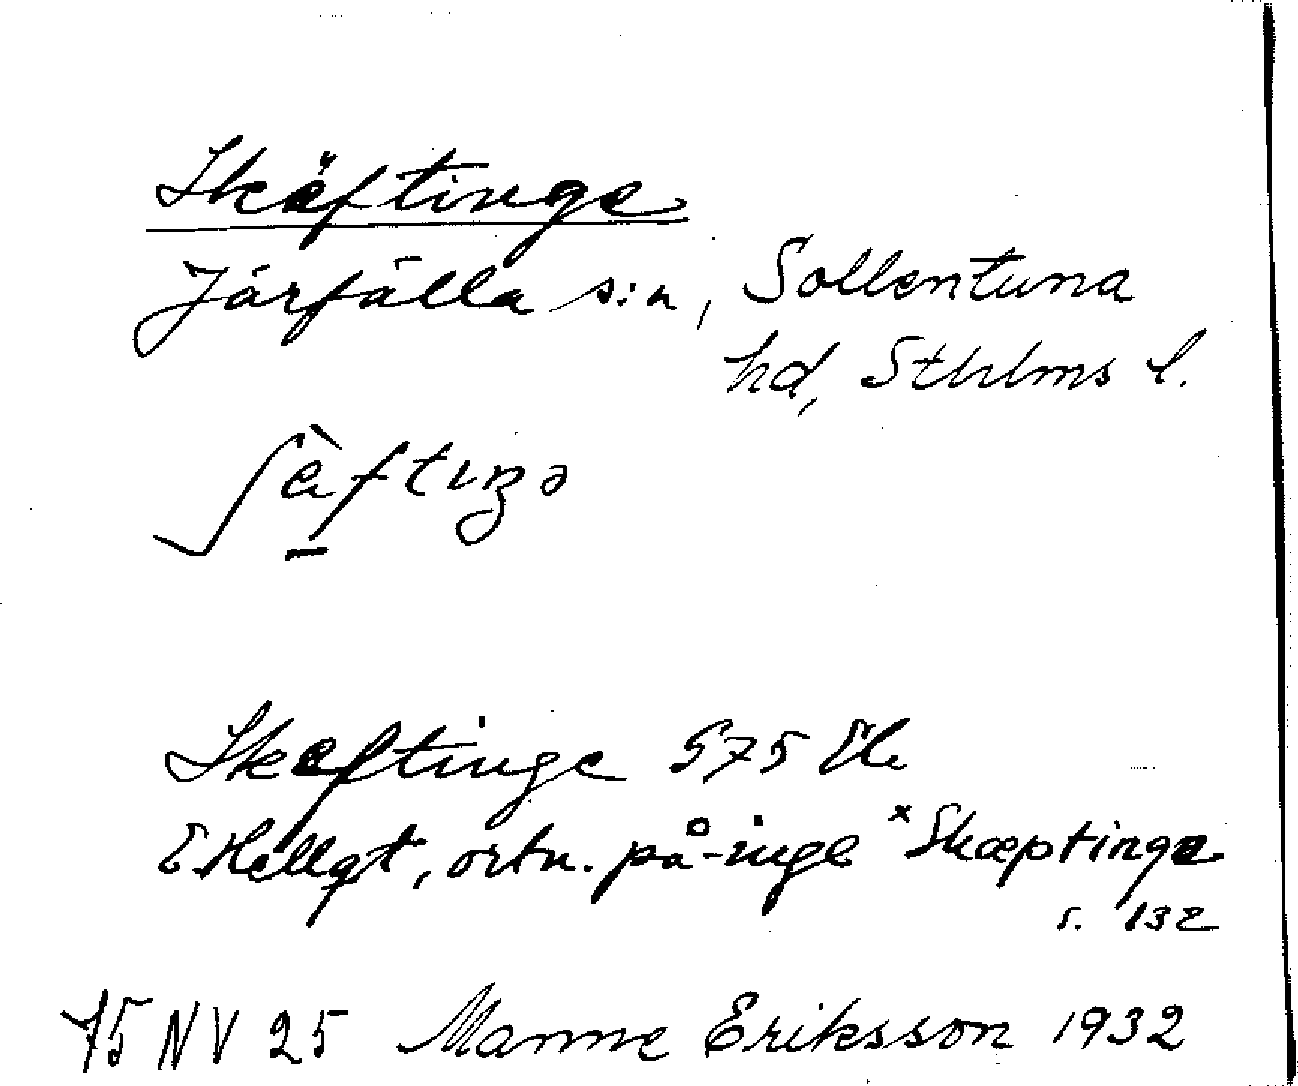 Skäftinge
Järfälla s:n, Sollentuna
hd, Sthlms l.
ʃæ̀ftɪŋə
Skæftinge 575
E Hellqt, ortn. på -inge *Skæptinge
s. 132
75 NV 25 Manne Eriksson 1932